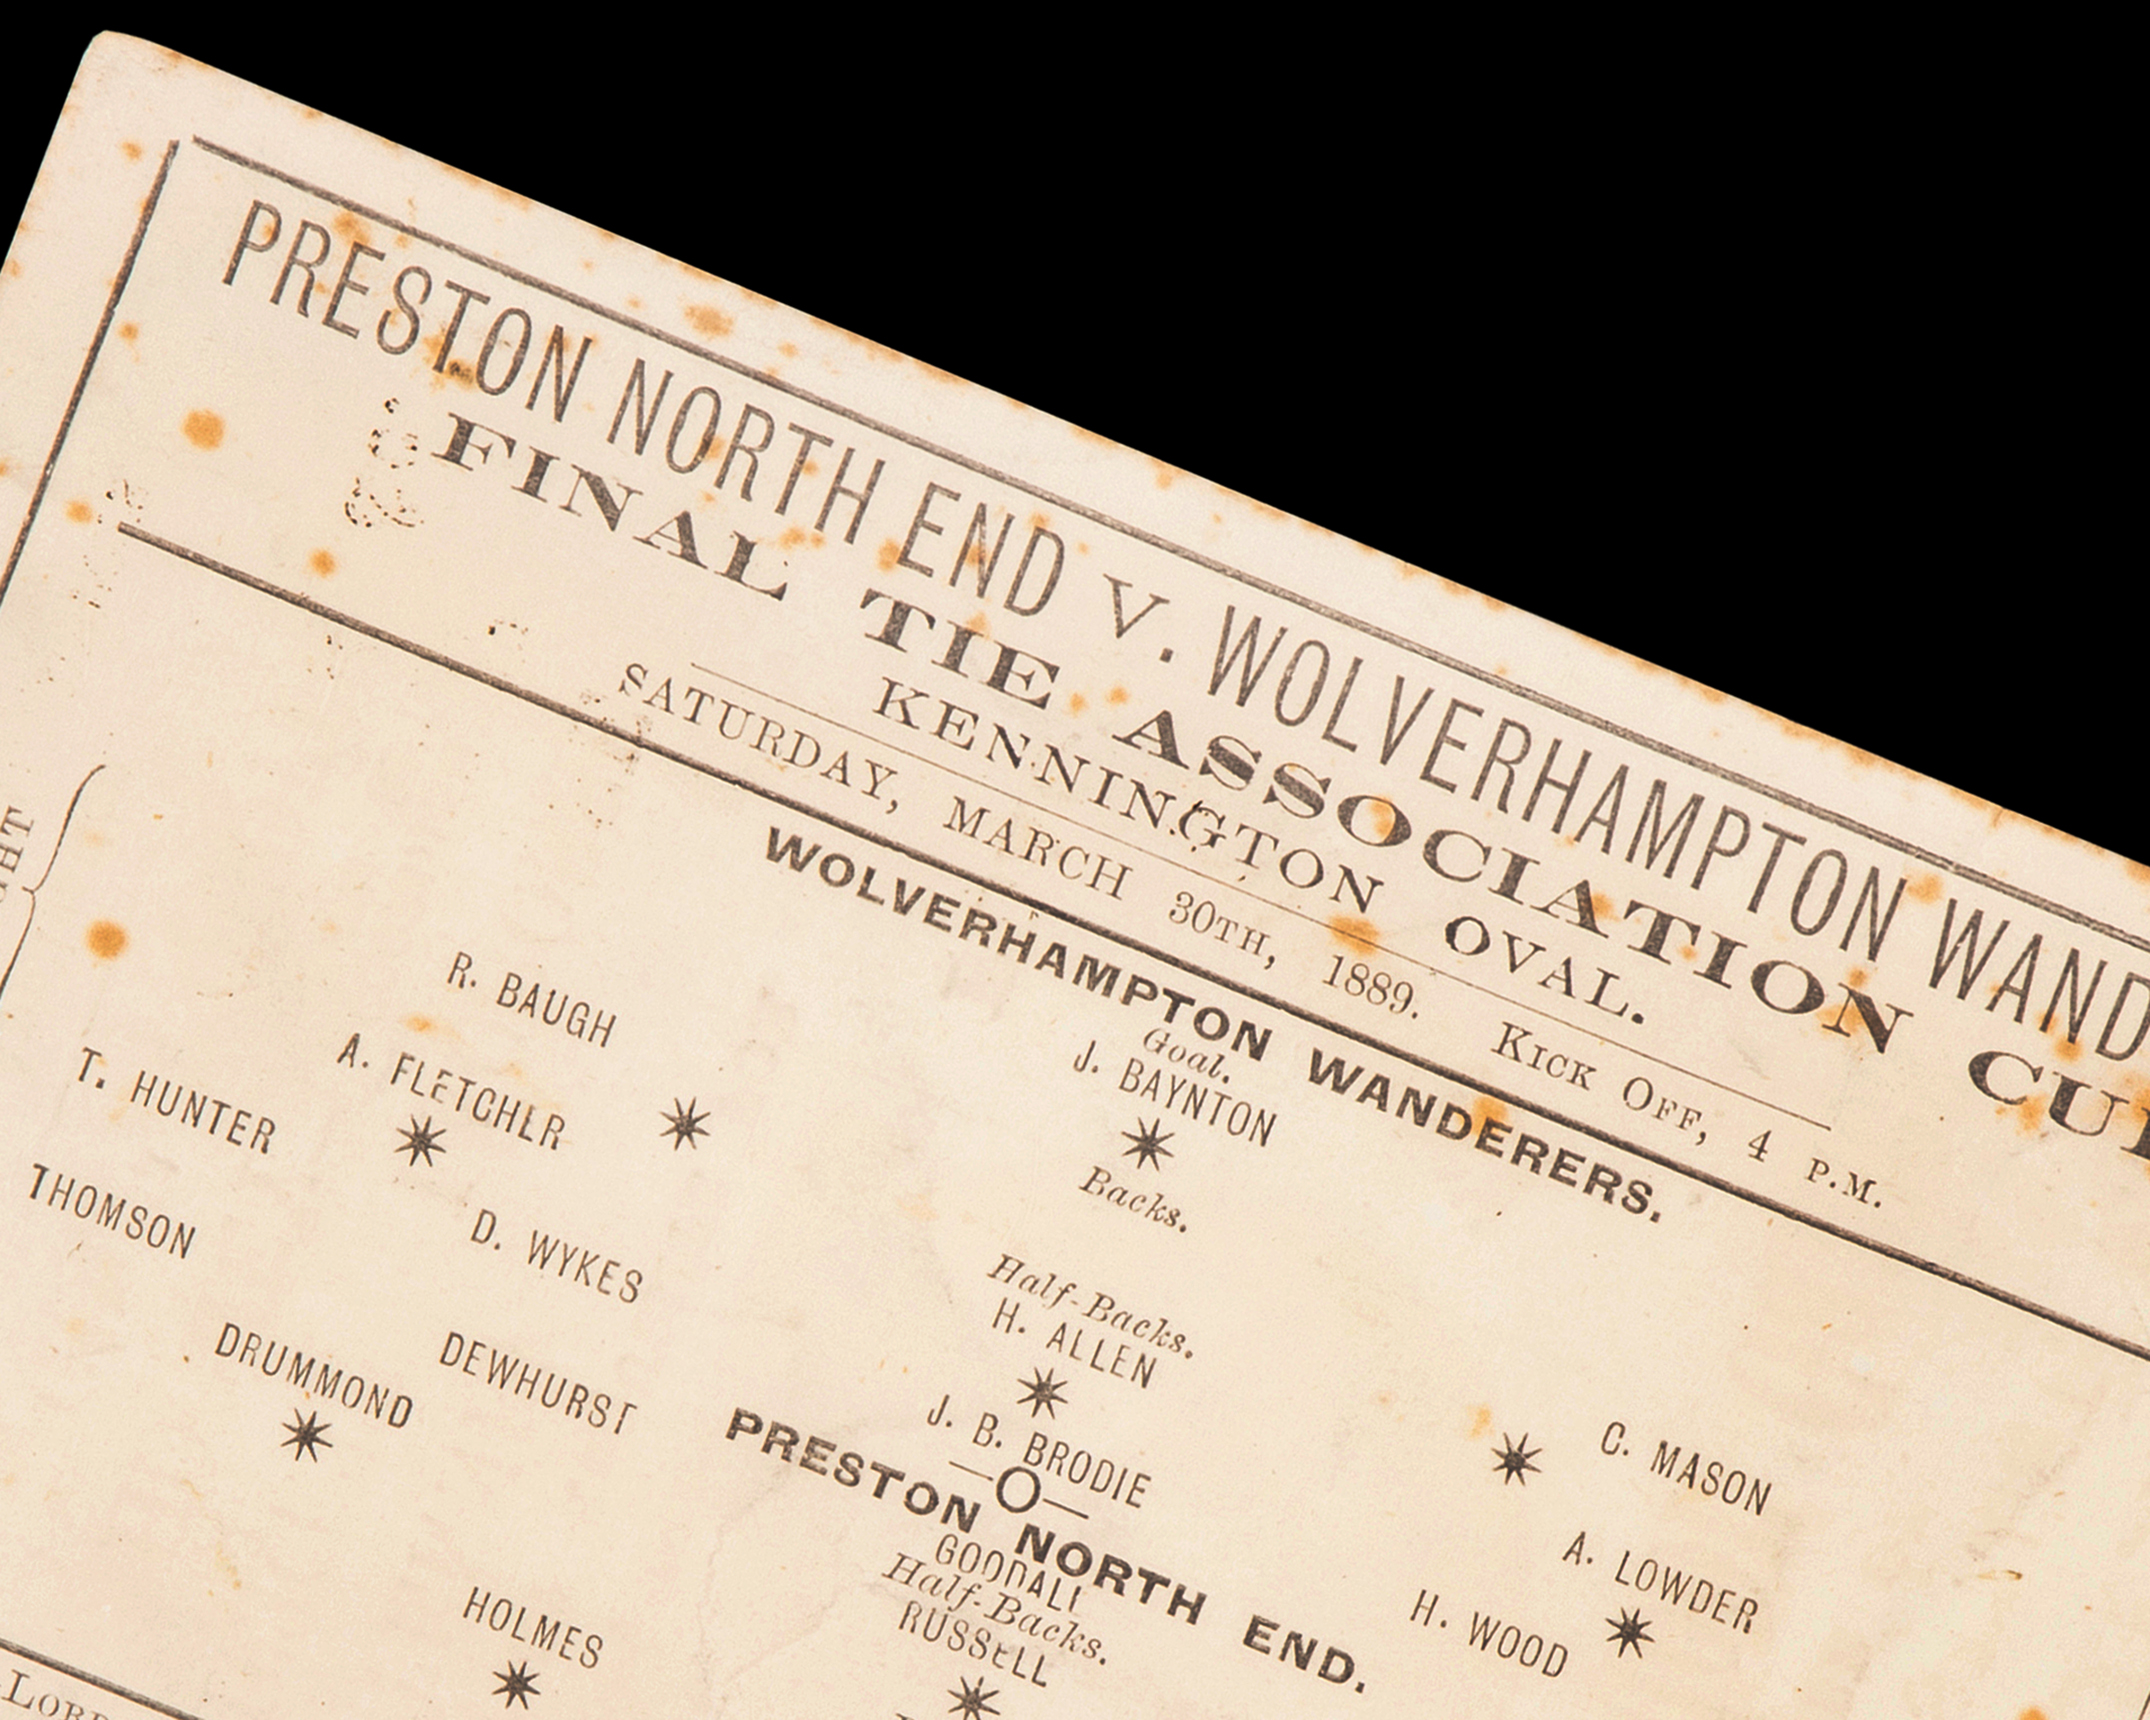 PRESTON NORTH END V. WOLVERHAMPTON WAND
FINAL TIE ASSOCIATION CU
KENNINGTON OVAL.
SATURDAY, MARCH 30TH, 1889. KICK OFF, 4 P.M.
WOLVERHAMPTON WANDERERS.
Goal.
J. BAYNTON
Backs.
R. BAUGH
C. MASON
Half-Backs.
A. FLETCHER
H. ALLEN
A. LOWDER
T. HUNTER
D. WYKES
J. B. BRODIE
H. WOOD
—O—
PRESTON NORTH END.
THOMSON
DEWHURST
GOODALL
Half-Backs.
DRUMMOND
RUSSELL
HOLMES